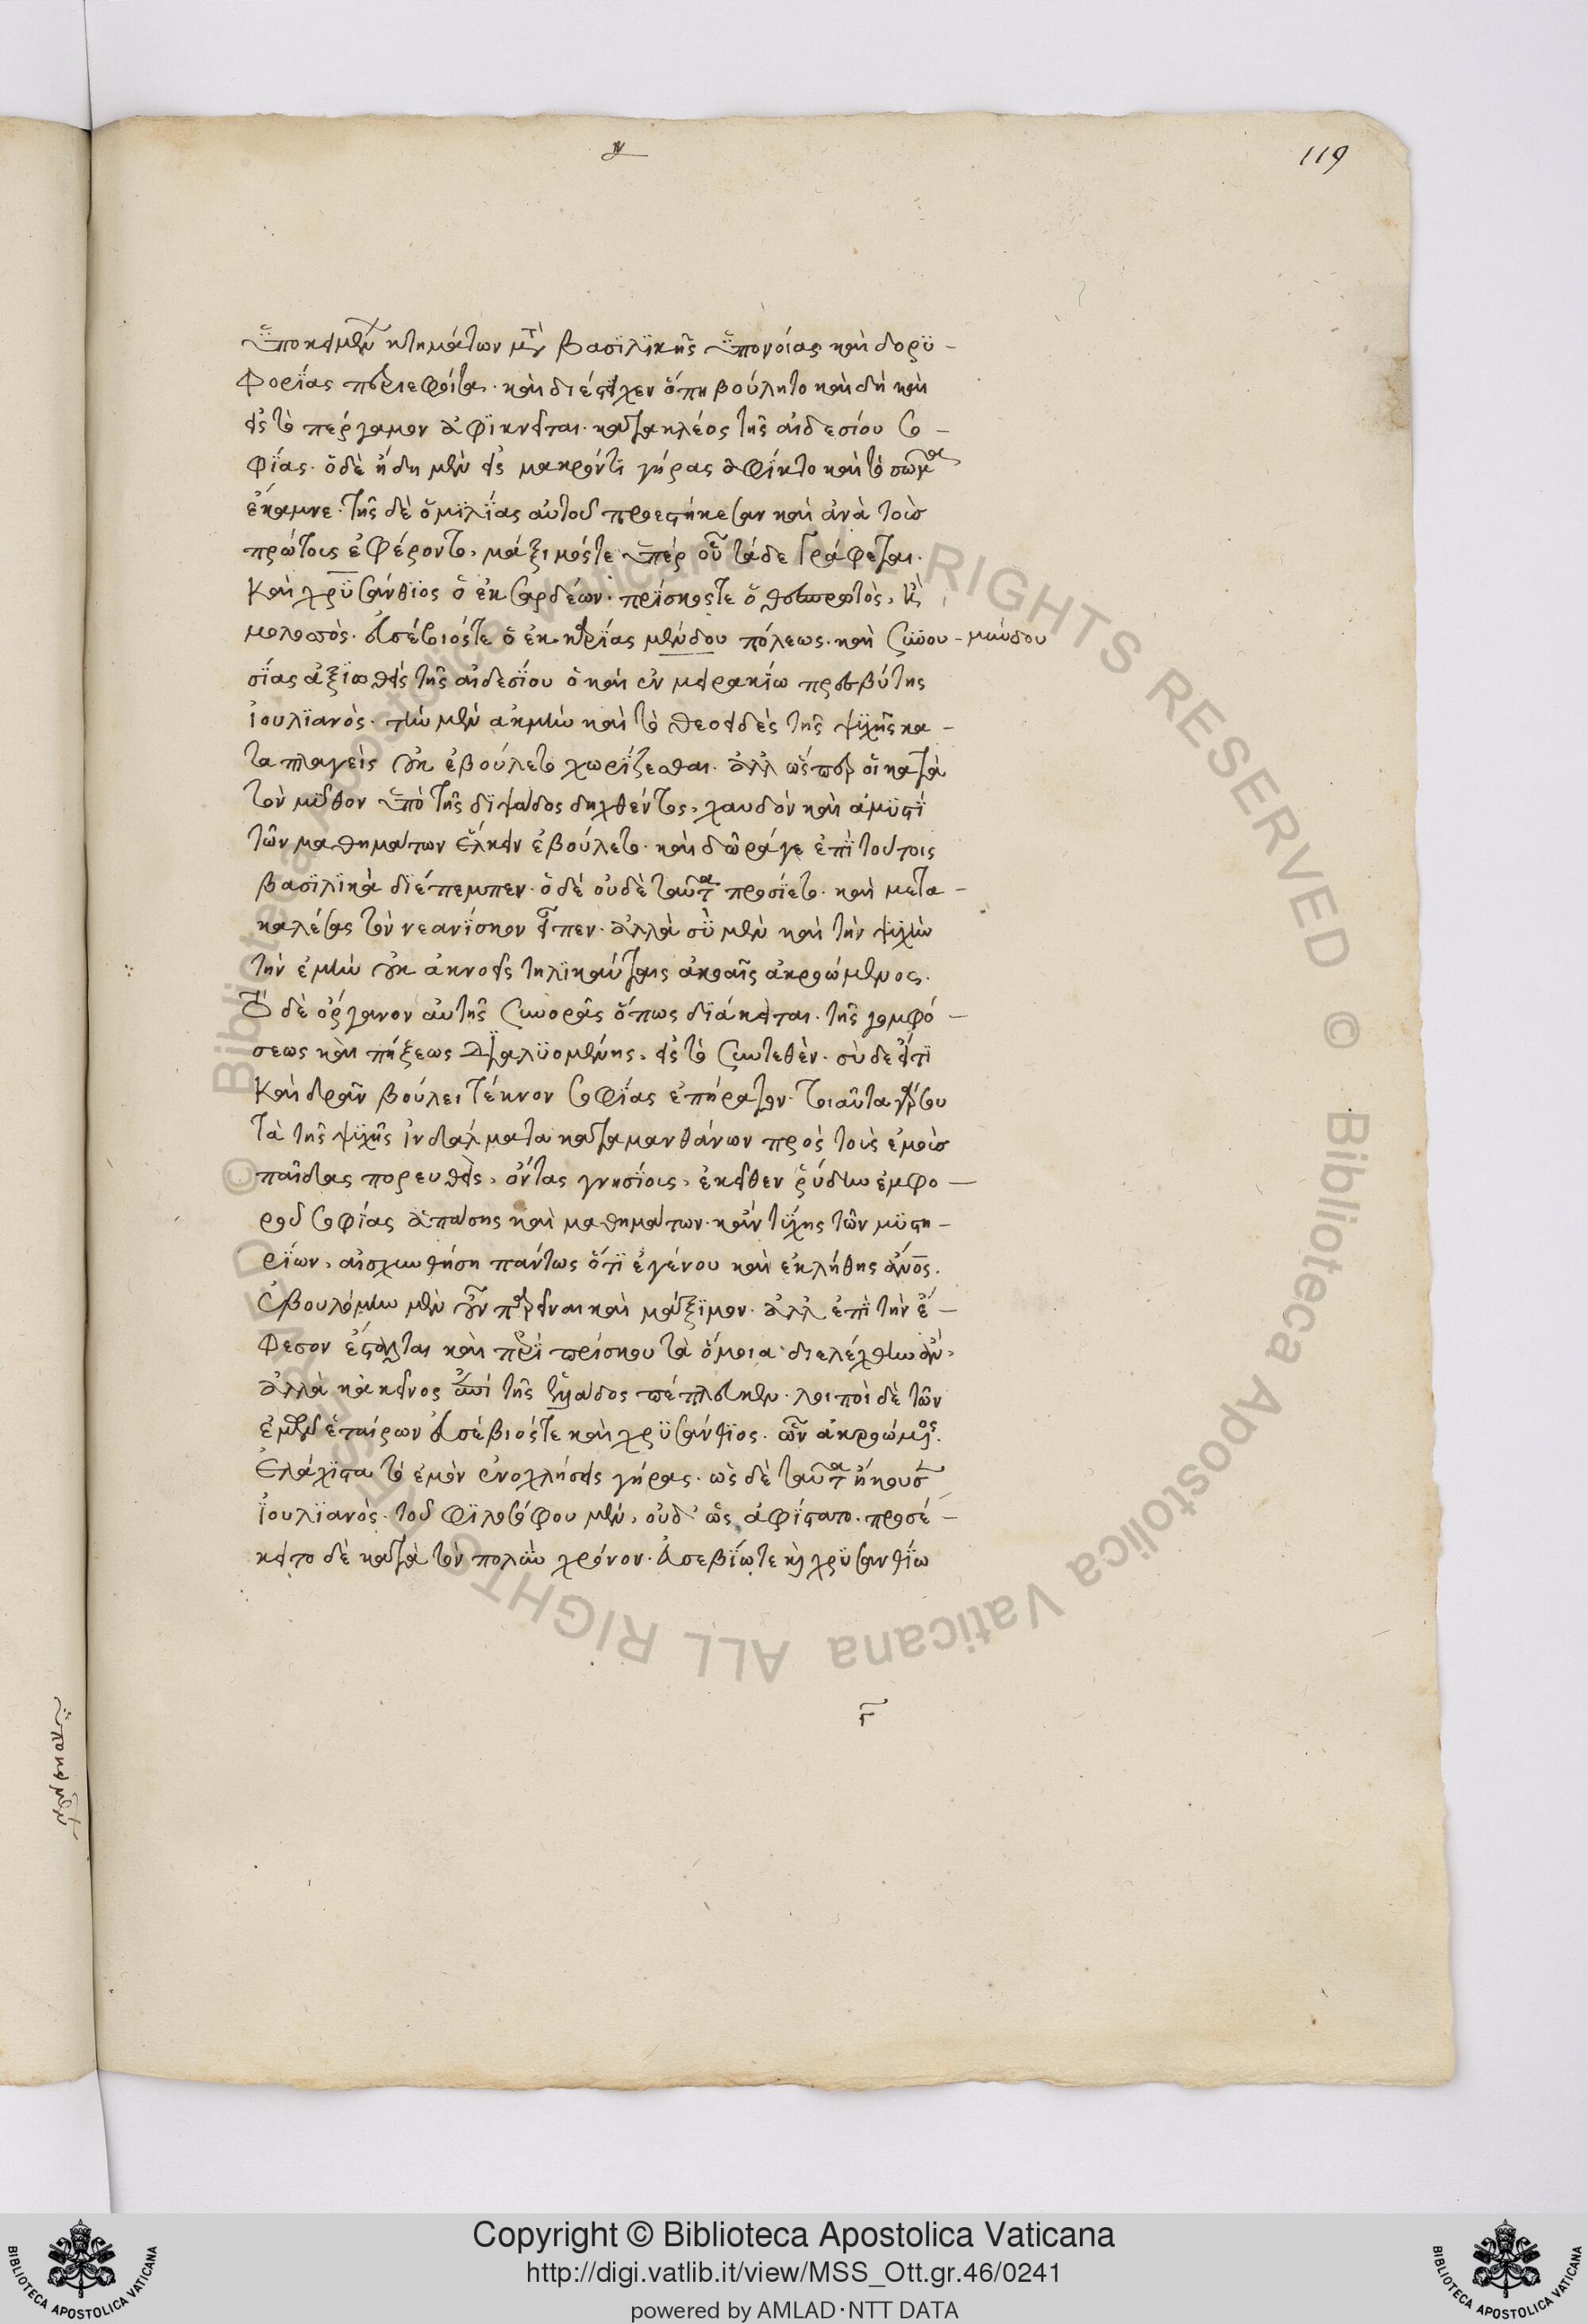 119
ὑποκειμένων κτημάτων μετὰ βασιλικῆς ὑπονοίας καὶ δορυ-
φορίας περιεφοίτα. καὶ διέστειχεν ὅπη βούλητο καὶ δὴ καὶ
εἰς τὸ πέργαμον ἀφικνεῖται. κατὰ κλέος τῆς αἰδεσίου σο-
φίας. ὁ δὲ ἤδη μὲν εἰς μακρόν τι γῆρας ἀφίκτο καὶ τὸ σῶμα
ἔκαμνε. τῆς δὲ ὁμιλίας αὐτοῦ προεστήκεσαν καὶ ἀνὰ τοὺς
πρώτους ἐφέροντο, μάξιμός τε ὑπὲρ οὗ τάδε γράφεται.
καὶ χρυσάνθιος ὁ ἐκ σαρδέων. πρίσκος τε ὁ θεσπρωτὸς, ἢ
μολοσσὸς. εὐσέβιός τε ὁ ἐκ καρίας μένδου πόλεως. καὶ συνου- μύνδου
σίας ἀξιωθεὶς τῆς αἰδεσίου ὁ καὶ ἐν μειρακίω πρεσβύτης
ἰουλιανὸς. τὴν μὲν ἀκμὴν καὶ τὸ θεοειδὲς τῆς ψυχῆς κα-
ταπλαγεὶς οὐκ ἐβούλετο χωρίζεσθαι. ἀλλ ὥσπερ οἱ κατὰ
τὸν μῦθον ὑπὸ τῆς διψάδος δηχθέντες, χανδὸν καὶ ἀμυστὶ
τῶν μαθημάτων ἕλκειν ἐβούλετο. καὶ δῶρά γε ἐπὶ τούτοις
βασιλικὰ διέπεμπεν. ὁ δὲ οὐδὲ ταῦτα προσίετο. καὶ μετα-
καλέσας τὸν νεανίσκον εἶπεν. ἀλλὰ σὺ μὲν καὶ τὴν ψυχὴν
τὴν ἐμὴν οὐκ ἀγνοεῖς τηλικαύταις ἀκοαῖς ἀκροώμενος.
τὸ δὲ ὄργανον αὐτῆς συνορᾶς ὅπως διάκειται. τῆς γομφώ-
σεως καὶ πήξεως διαλυομένης, εἰς τὸ συντεθέν. σὺ δὲ εἴ τι
καὶ δρᾶν βούλει τέκνον σοφίας ἐπήρατον. τοιαῦτα γάρ σου
τὰ τῆς ψυχῆς ἰνδάλματα καταμανθάνων πρὸς τοὺς ἐμοὺς
παῖδας πορευθεὶς, ὄντας γνησίους, ἐκεῖθεν ῥύδην ἐμφο-
ροῦ σοφίας ἁπάσης καὶ μαθημάτων. κἂν τύχης τῶν μυστη-
ρίων, αἰσχυνθήση πάντως ὅτι ἐγένου καὶ ἐκλήθης ἄνος.
ἐβουλόμην μὲν οὖν παρεῖναι καὶ μάξιμον. ἀλλ ἐπὶ τὴν ἔ-
φεσον ἔσταλται καὶ περὶ πρίσκου τὰ ὅμοια διελέχθην ἂν,
ἀλλὰ κἀκεῖνος ἐπὶ τῆς ἑλλάδος πέπλευκεν. λοιποὶ δὲ τῶν
ἐμῶν ἑταίρων εὐσέβιός τε καὶ χρυσάνθιος. ὧν ἀκροώμενος.
ἐλάχιστα τὸ ἐμὸν ἐνοχλήσεις γῆρας. ὡς δὲ ταῦτα ἤκουσεν
ἰουλιανὸς. τοῦ φιλοσόφου μὲν, οὐδ' ὣς ἀφίστατο. προσέ-
κειτο δὲ κατὰ τὸν πολὺν χρόνον. εὐσεβίω τε καὶ χρυσανθίω
Copyright © Biblioteca Apostolica Vaticana
http://digi.vatlib.it/view/MSS_Ott.gr.46/0241
powered by AMLAD·NTT DATA